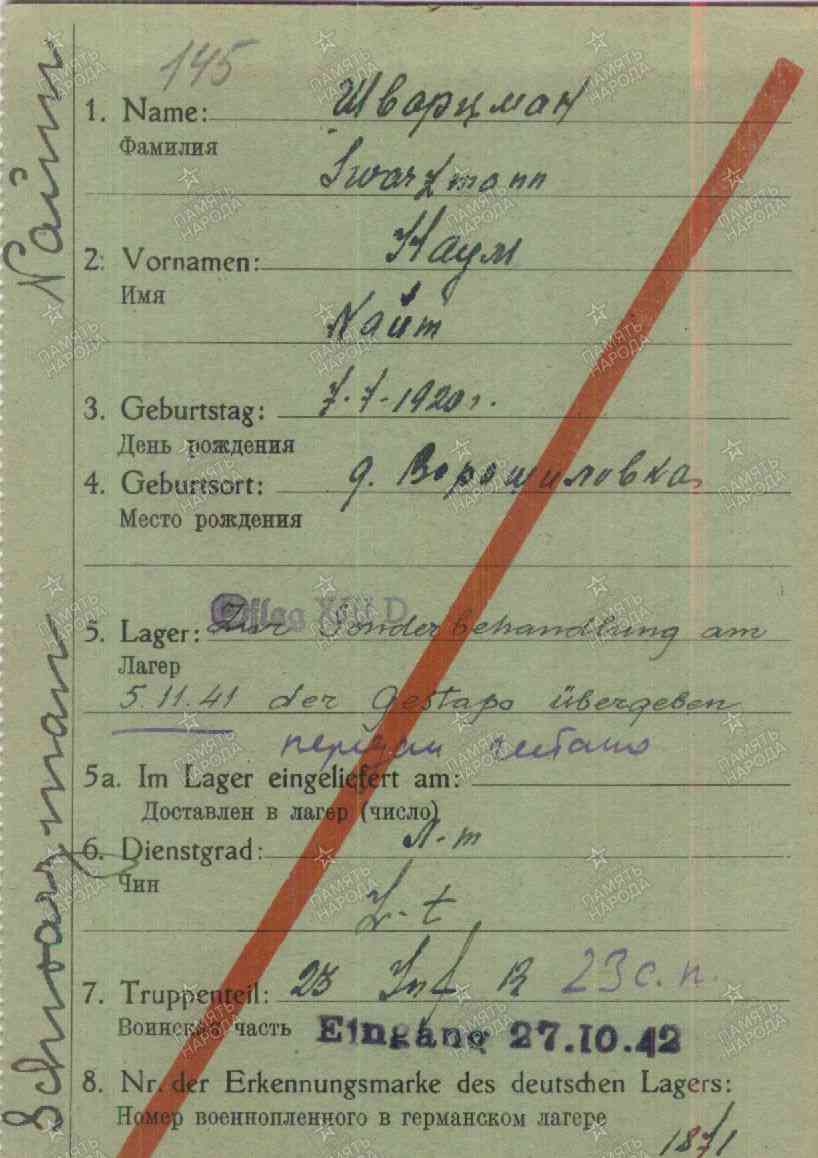 145
1. Name: Шварцман
Фамилия
Swarzmann
2. Vornamen: Наум
Имя
Naum
3. Geburtstag: 7.7.1920г.
День рождения
4. Geburtsort: д. Ворошиловка
Место рождения
Oflag XIII D
5. Lager: Zur Sonderbehandlung am
Лагер
5.11.41 der Gestapo übergeben
передан гестапо
5a. Im Lager eingeliefert am:
Доставлен в лагер (число)
6. Dienstgrad: Л-т
Чин
L-t
7. Truppenteil: 23 Inf R 23 с.п.
Воинская часть
Eingang 27.10.42
8. Nr. der Erkennungsmarke des deutschen Lagers:
Номер военнопленного в германском лагере
1871
Schwarzman Naum
ПАМЯТЬ НАРОДА